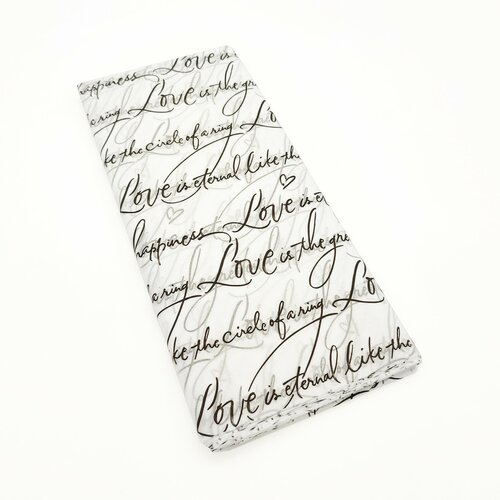 happiness Love is e
a ring Love is the gre
ke the circle of a ring Lo
Love is eternal like the
happiness Love is et
a ring Love is the gre
ke the circle of a ring Lo
Love is eternal like the